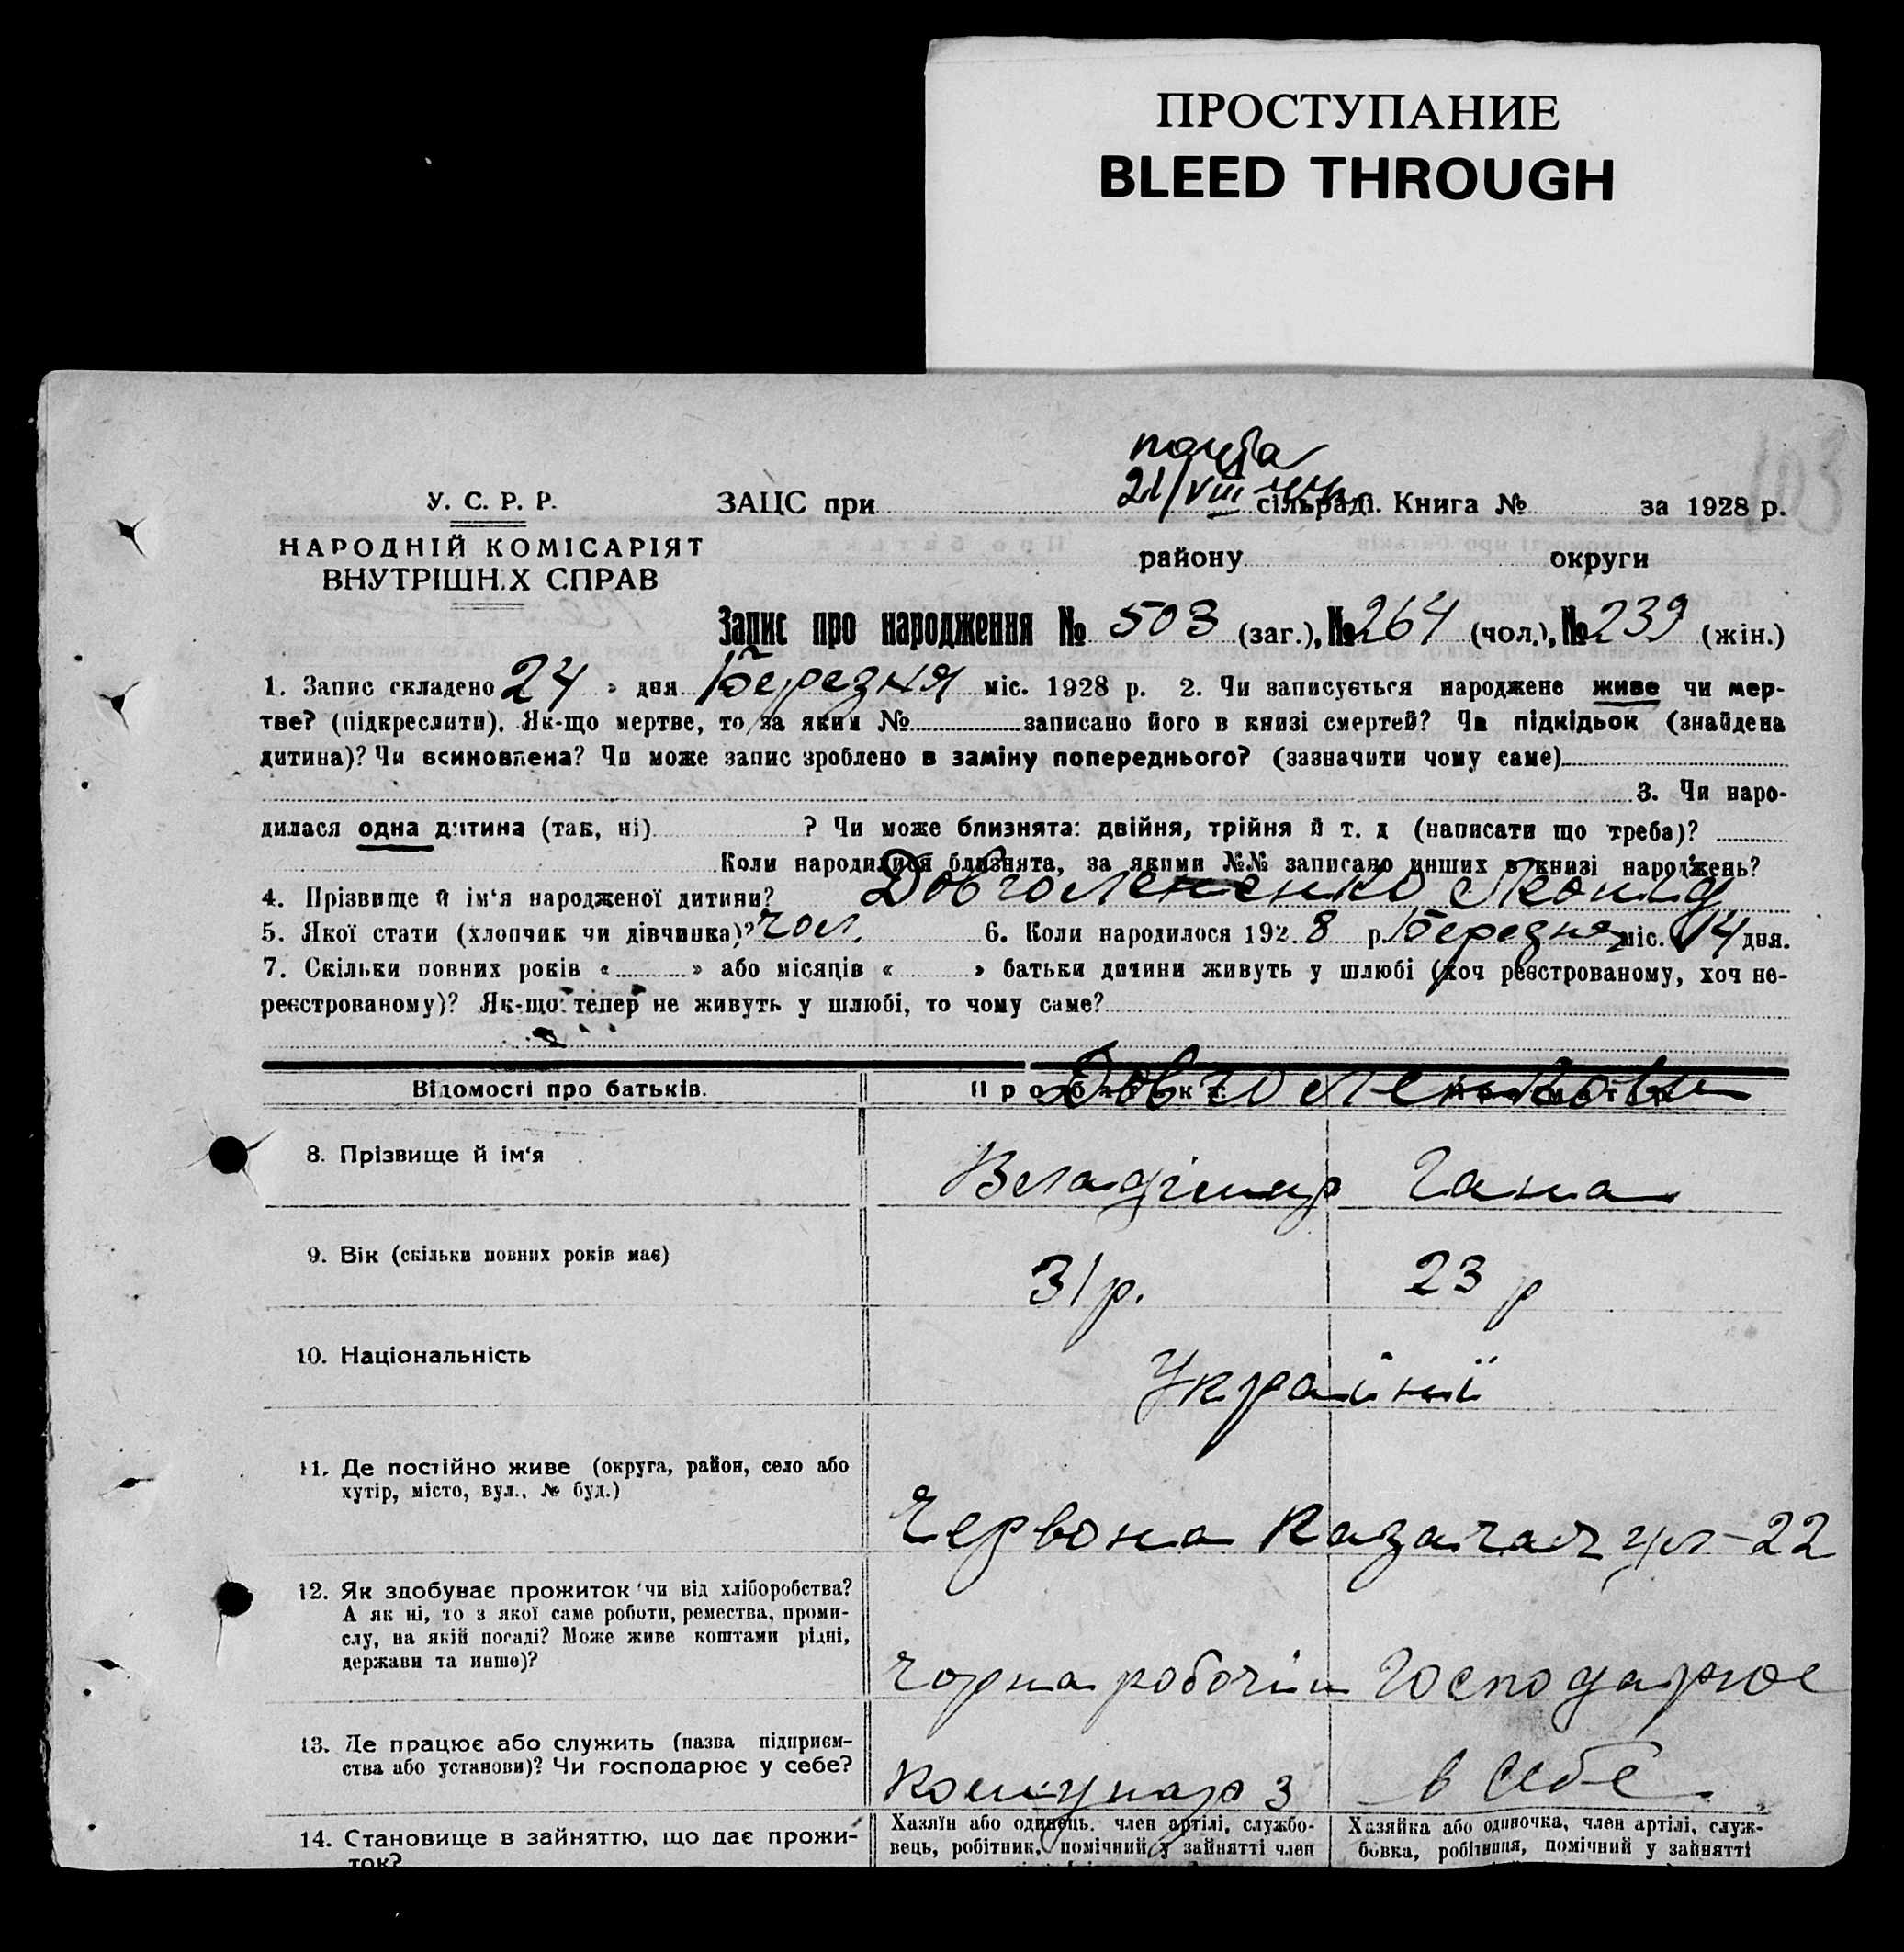 ПРОСТУПАНИЕ
BLEED THROUGH
21/VIII
У. С. Р. Р.
ЗАЦС при сільраді. Книга № за 1928 р.
НАРОДНІЙ КОМІСАРІЯТ
ВНУТРІШНІХ СПРАВ
району округи
Запис про народження № 503 (заг.), № 264 (чол.), № 239 (жін.)
1. Запис складено 24 » дня Березня міс. 1928 р. 2. Чи записується народжене живе чи мер-
тве? (підкреслити). Як-що мертве, то за яким № записано його в книзі смертей? Чи підкідьок (знайдена
дитина)? Чи всиновлена? Чи може запис зроблено в заміну попереднього? (зазначити чому саме)
3. Чи наро-
дилася одна дитина (так, ні) ? Чи може близнята: двійня, трійня й т. д (написати що треба)?
Коли народилися близнята, за якими №№ записано инших в книзі народжень?
4. Прізвище й ім'я народженої дитини? Довголенченко Леонид
5. Якої стати (хлопчик чи дівчинка)? чол. 6. Коли народилося 1928 р. Березня міс. 14 дня.
7. Скільки повних років « » або місяців « » батьки дитини живуть у шлюбі (хоч реєстрованому, хоч не-
реєстрованому)? Як-що тепер не живуть у шлюбі, то чому саме?
Відомості про батьків. Про батька. Про матір
8. Прізвище й ім'я Владімир Гана
9. Вік (скільки повних років має) 31 р. 23 р
10. Національність Українці
11. Де постійно живе (округа, район, село або
хутір, місто, вул., № буд.)
Червона Казачая ул-22
12. Як здобуває прожиток чи від хліборобства?
А як ні, то з якої саме роботи, ремества, проми-
слу, на якій посаді? Може живе коштами рідні,
держави та инше)?
Чорна робочий Господарює
13. Де працює або служить (назва підприєм-
ства або установи)? Чи господарює у себе?
Комунар 3 в себе
14. Становище в зайняттю, що дає прожи-
ток?
Хазяїн або одинець, член артілі, службо-
вець, робітник, помічний у зайнятті член
Хазяйка або одиночка, член артілі, служ-
бовка, робітниця, помічний у зайнятті